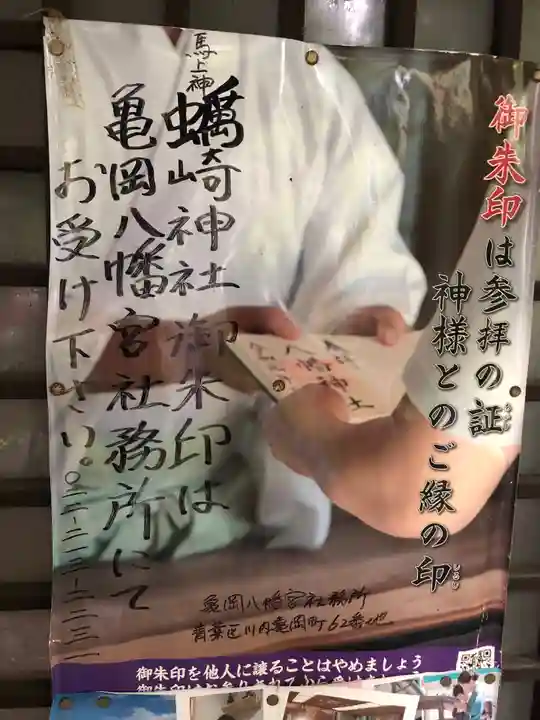 御朱印は参拝の証
あかし
神様とのご縁の印
しるし
馬上神
蠣崎神社御朱印は
亀岡八幡宮社務所にて
お受け下さい。〇二二-二二三-二三一
亀岡八幡宮社務所
青葉区川内亀岡町62番地
八幡神社
御朱印を他人に譲ることはやめましょう